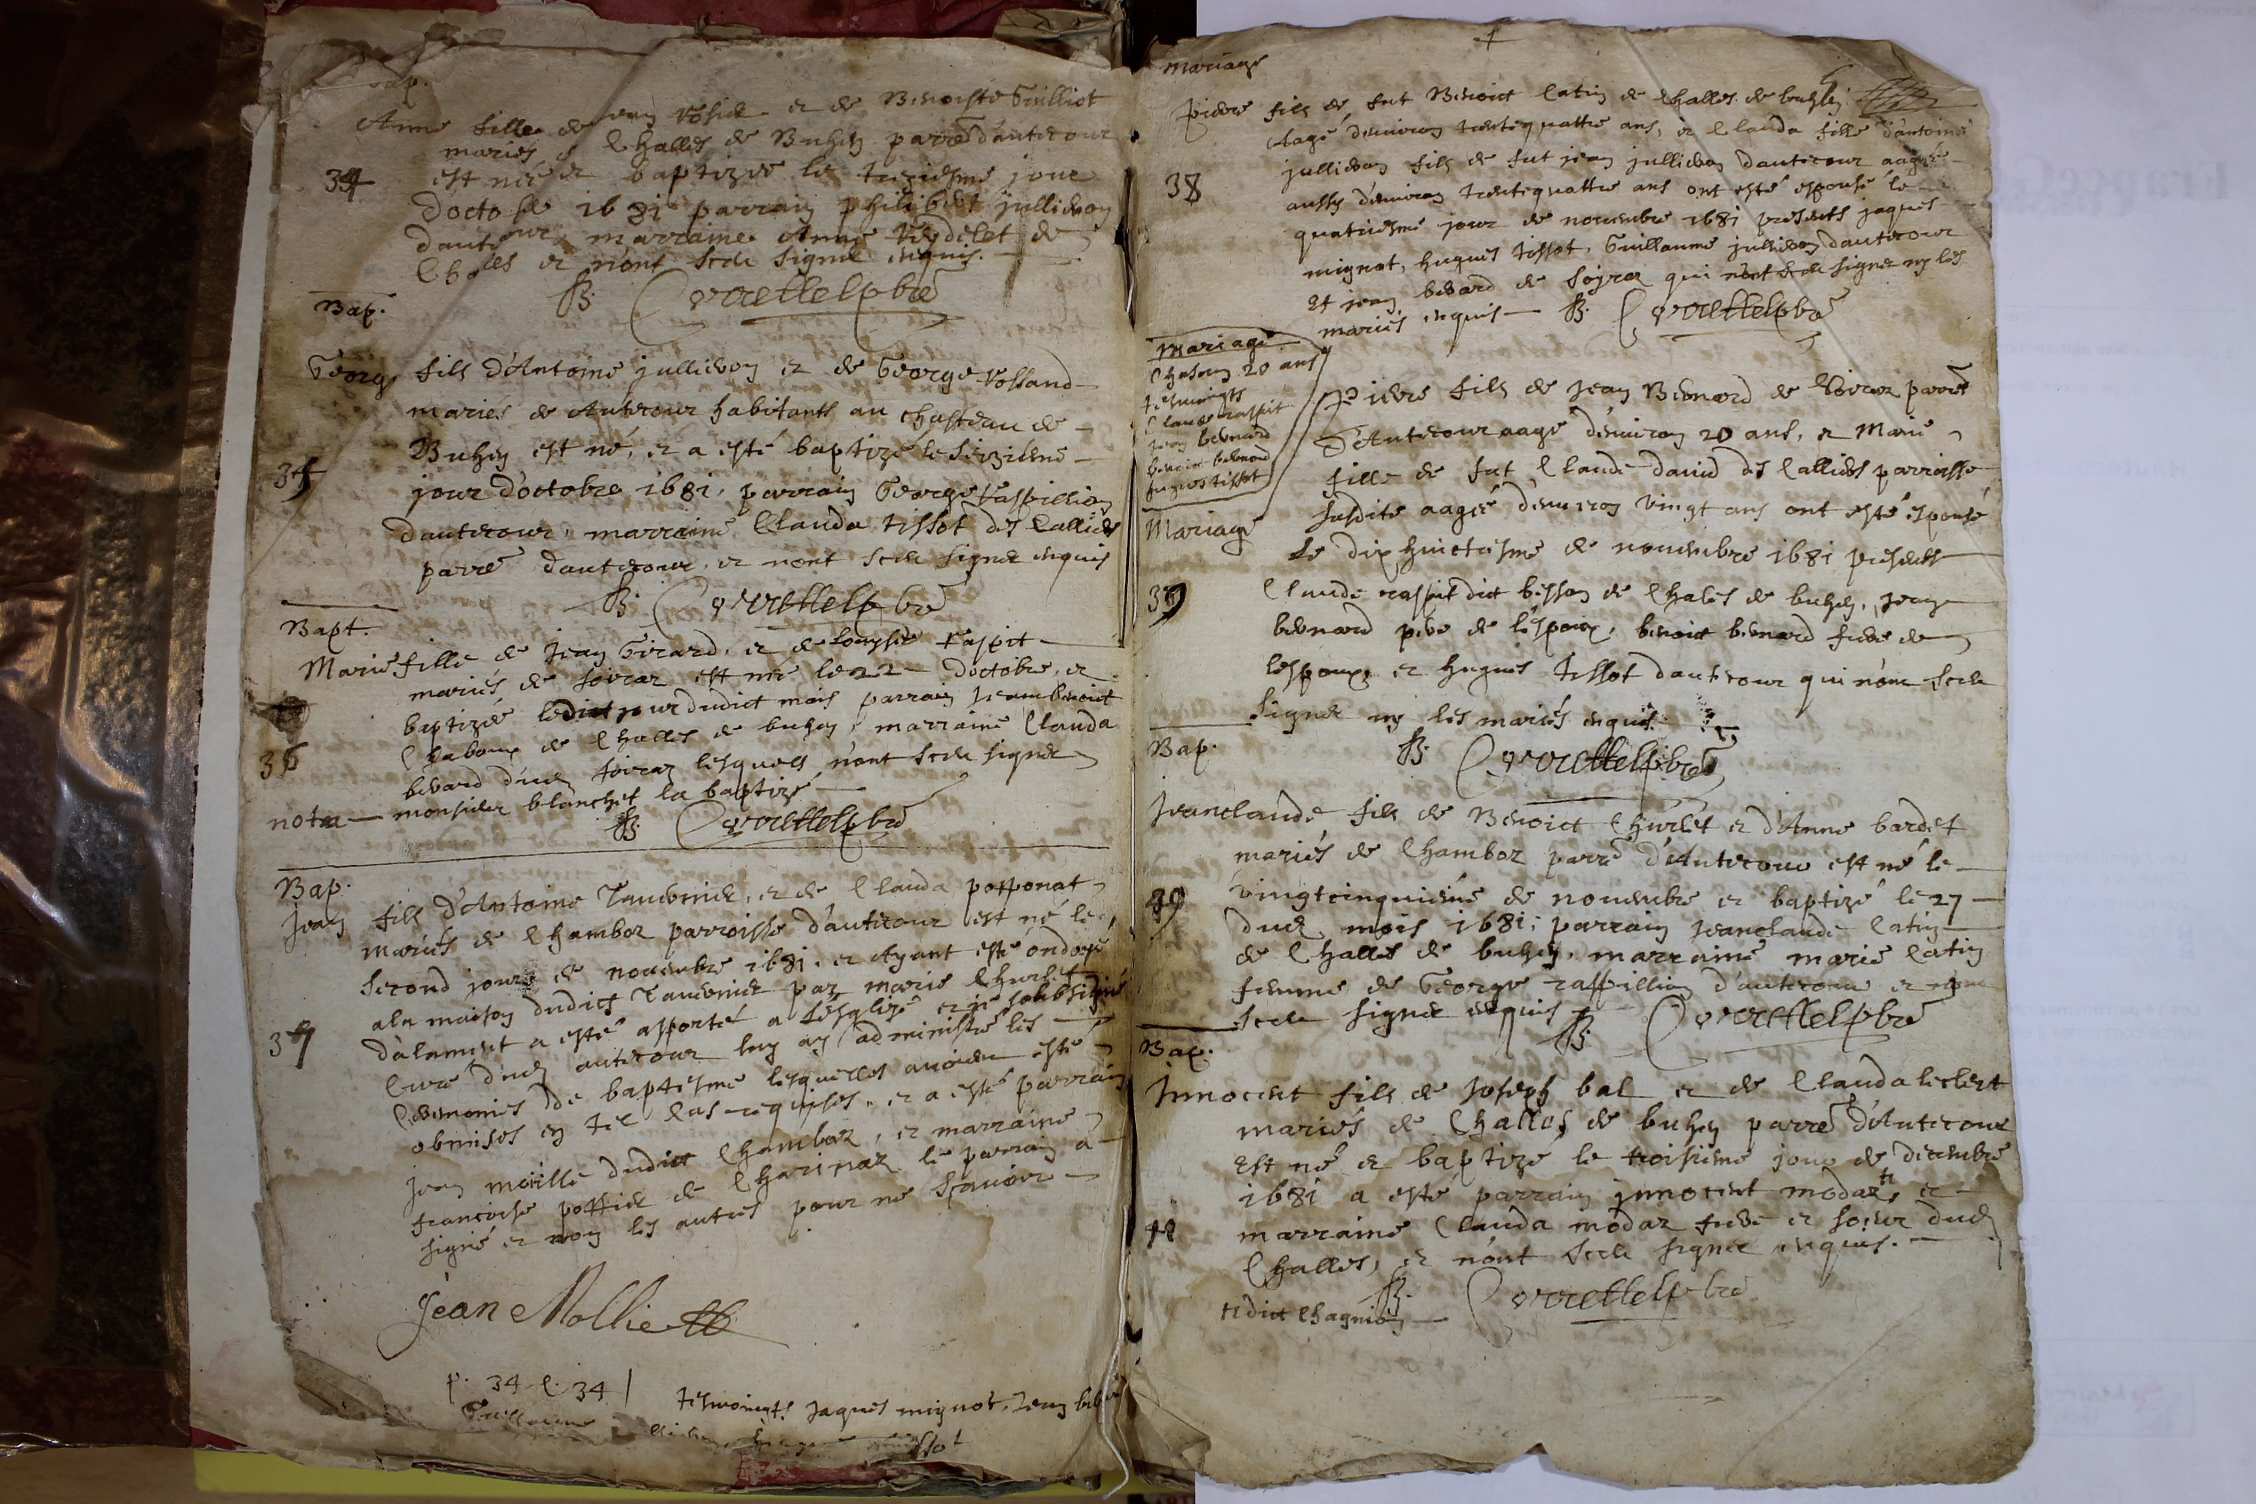 Bap.
Anne fille de Rosier et de Benoiste Guilliot
mariés Challes de Buhen parre d'autecour
34
est née et baptizée le treziesme jour
doctobre 1681 parrain philibert jullieron
dautecour marraine Anne de
Challes et n'ont sceu signer enquis.
Bap.
George fils d'Antoine jullieron et de George Vossand
mariés de Autecour habitants au chasteau de
Buhen est né, et a esté baptizé le
jour d'octobre 1681, parrain George raspillion
dautecour, marraine Clauda tissot des Calliers
parre dautecour, et n'ont sceu signer enquis
Bapt.
Marie fille de Jean Girard, et de Louyse raspit
mariés de Soiraz est née le 22 doctobre, et
baptizée ledict jour dudict mois parrain Jeanbenoict
Chaboux de Challes de buhen, marraine Clauda
36
bevard dud Soiraz lesquels n'ont sceu signer
nota monsieur blanchet la baptizé
Bap.
Jean fils d'Antoine Tavernier, et de Clauda
mariés de Chamboz parroisse d'autecour est né le
second jour de novembre 1681. et Ayant esté ondoyé
a la maison dudict Tavernier par marie Churlet
37
a esté apporté a Lesglize et je soubsigné
Curé dud autecour luy ay administré les
Ceremonies de baptesme lesquelles avoient esté
obmises en tel cas requises, et a esté parrain
Jean moillie dudict Chamboz, et marraine
francoise de Charinaz le parrain a
signé et non les autres pour ne scavoir
Jean Mollie
p. 34 l. 34
tesmoingts Jaques mignot, Jean
mariage
Pierre fils de fut Benoict Catin de Challes de buhen
Aagé denviron trentequattre ans, et Clauda fille d'antoine
jullieron fils de fut jean jullieron dautecour aagée
38
aussy denviron trentequattre ans ont esté espousé le
quatriesme jour de novembre 1681 presents jaques
mignot, hugues tissot, Guillaume jullieron dautecour
Et jean bevard de Soyraz qui n'ont sceu signer ny les
mariés enquis
Mariage
20 ans
tesmoingts
Claude raspit
Jean bernard
benoict bernard
hugues tissot
Mariage
Pierre fils de Jean Bernard de Soiraz parre
d'Autecour aagé d'environ 20 ans, et Marie
fille de fut Claude david des Calliers parroisse
susdite aagée d'environ vingt ans ont esté espousé
Le dixhuictiesme de novembre 1681 presents
39
Claude raspit dict besson de Chales de buhen, Jean
bernard pere de l'espoux, benoict bernard frere de
lespoux, et hugues tissot dautecour qui n'ont sceu
signer ny les mariés enquis
Bap.
Jeanclaude fils de Benoict Churlet et d'Anne bardet
mariés de Chamboz parre d'Autecour est né le
vingtcinquiesme de novembre et baptizé le 27
dud. mois 1681: parrain Jeanclaude Catin
de Challes de buhen, marraine marie Catin
femme de George raspillion d'autecour et n'ont
sceu signer enquis
Bap.
Innocent fils de Joseph bal et de Clauda leclert
mariés de Challes de buhen parre d'Autecour
Est né et baptizé le troisieme jour de decembre
1681 a esté parrain Innocent modaz, et
marraine Clauda modaz frere et soeur dud
Challes, et n'ont sceu signer enquis.
dict Chagnion